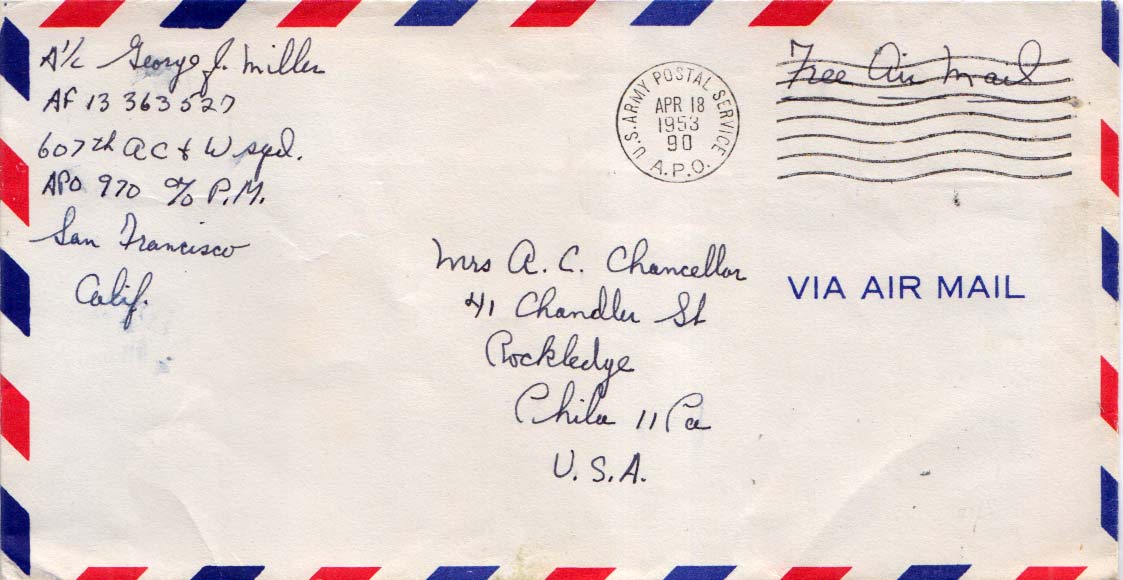 A1/c George J. Miller
AF 13 363 527
607th A C & W sqd.
APO 970 c/o P.M.
San Francisco
Calif.
U.S. ARMY POSTAL SERVICE
APR 18
1953
90
A.P.O.
Free Air Mail
Mrs A. C. Chancellor
41 Chandler St
Rockledge
Phila 11 Pa
U.S.A.
VIA AIR MAIL